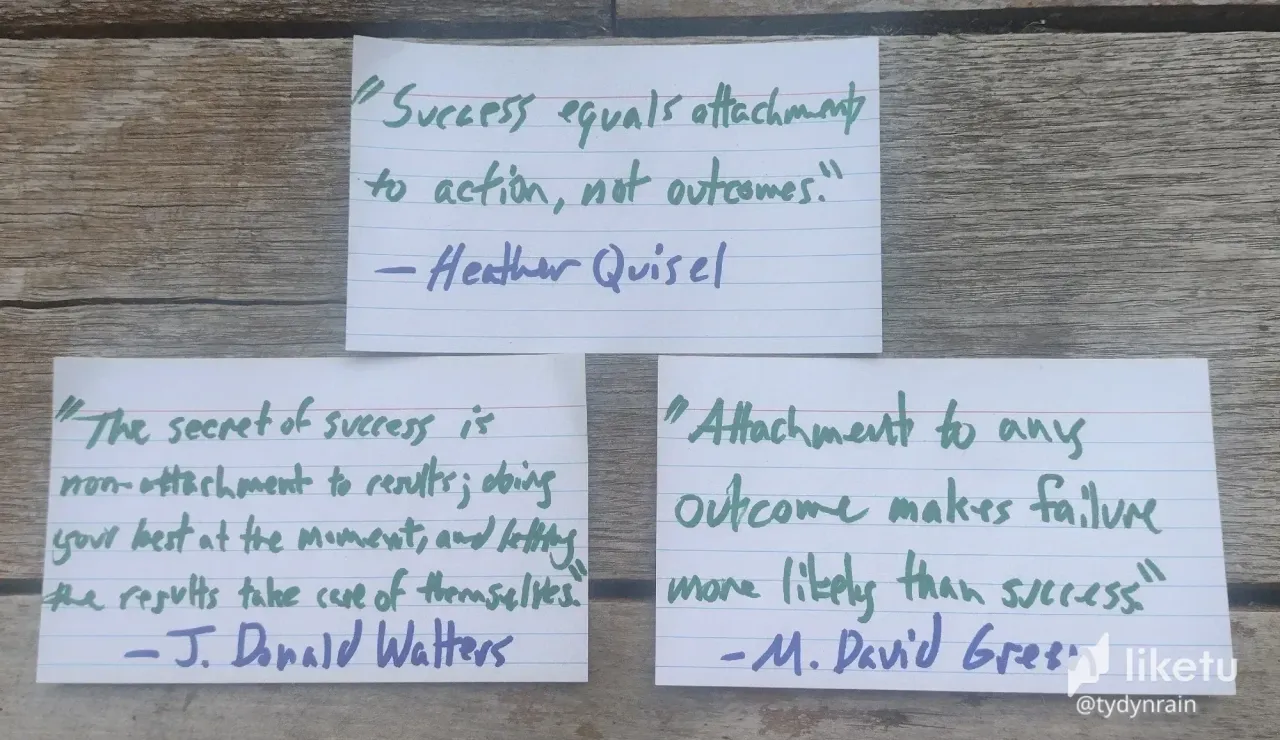 "Success equals attachment
to action, not outcomes."
— Heather Quisel
"The secret of success is
non-attachment to results; doing
your best at the moment, and letting
the results take care of themselves."
— J. Donald Walters
"Attachment to any
outcome makes failure
more likely than success."
— M. David Green
liketu
@tydynrain